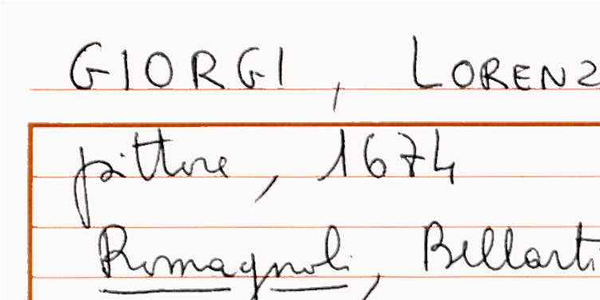 GIORGI, LORENZ
pittore, 1674
Romagnoli, Bellarti